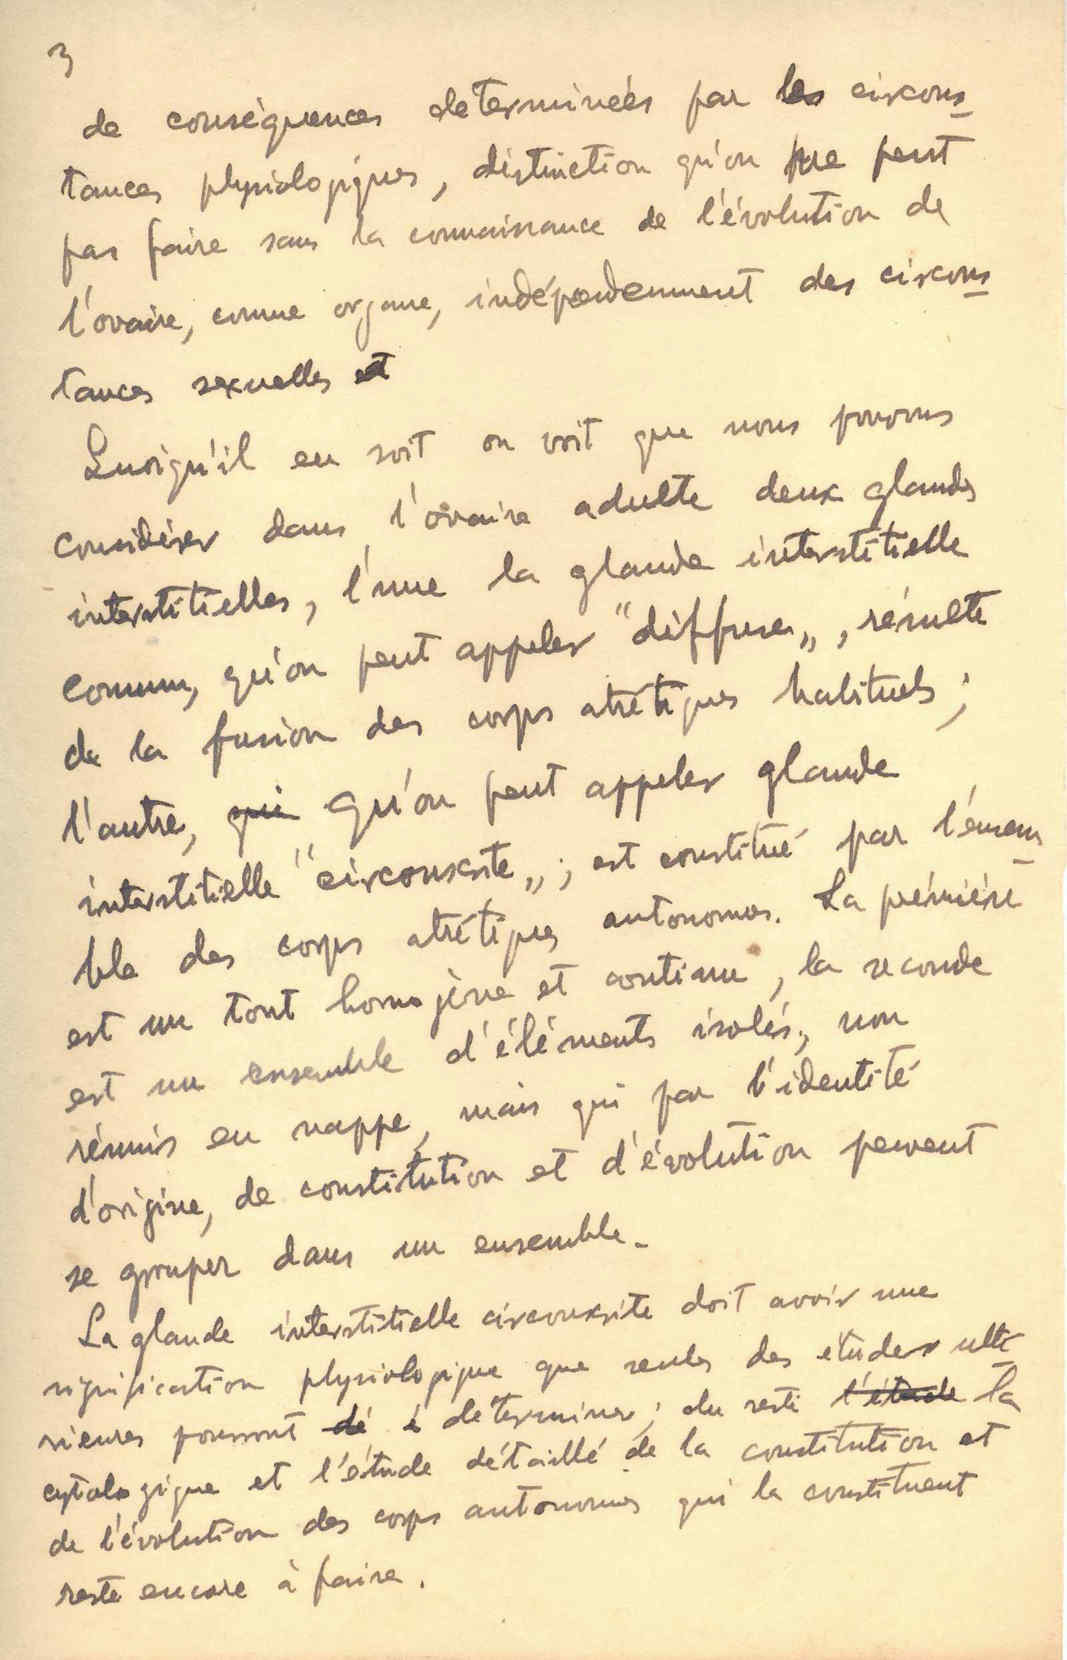 3
de conséquences determinées par les circons-
tances physiologiques, distinction qu'on ne peut
pas faire sans la connaissance de l'évolution de
l'ovaire, comme organe, indépendenment des circons-
tances sexuelles et
Quoiqu'il en soit on voit que nous pouvons
considérer dans l'ovaire adulte deux glandes
interstitielles, l'une la glande interstitielle
comum, qu'on peut appeler "diffuse„, résulte
de la fusion des corps atrétiques habituels;
l'autre, qui qu'on peut appeler glande
interstitielle "circonscrite„; est constitué par l'énsem-
ble des corps atrétiques autonomes. La prémiére
est un tout homogène et continu, la seconde
est un ensemble d'éléments isolés, non
réunis en nappe, mais qui par l'identité
d'origine, de constitution et d'évolution peuvent
se grouper dans un ensemble.
La glande interstitielle circonscrite doit avoir une
signification physiologique que seules des études ulté-
rieures pourront dé é determiner; du reste l'étude la
cytologique et l'étude détaillé de la constitution et
de l'évolution des corps autonomes qui la constituent
reste encore à faire.